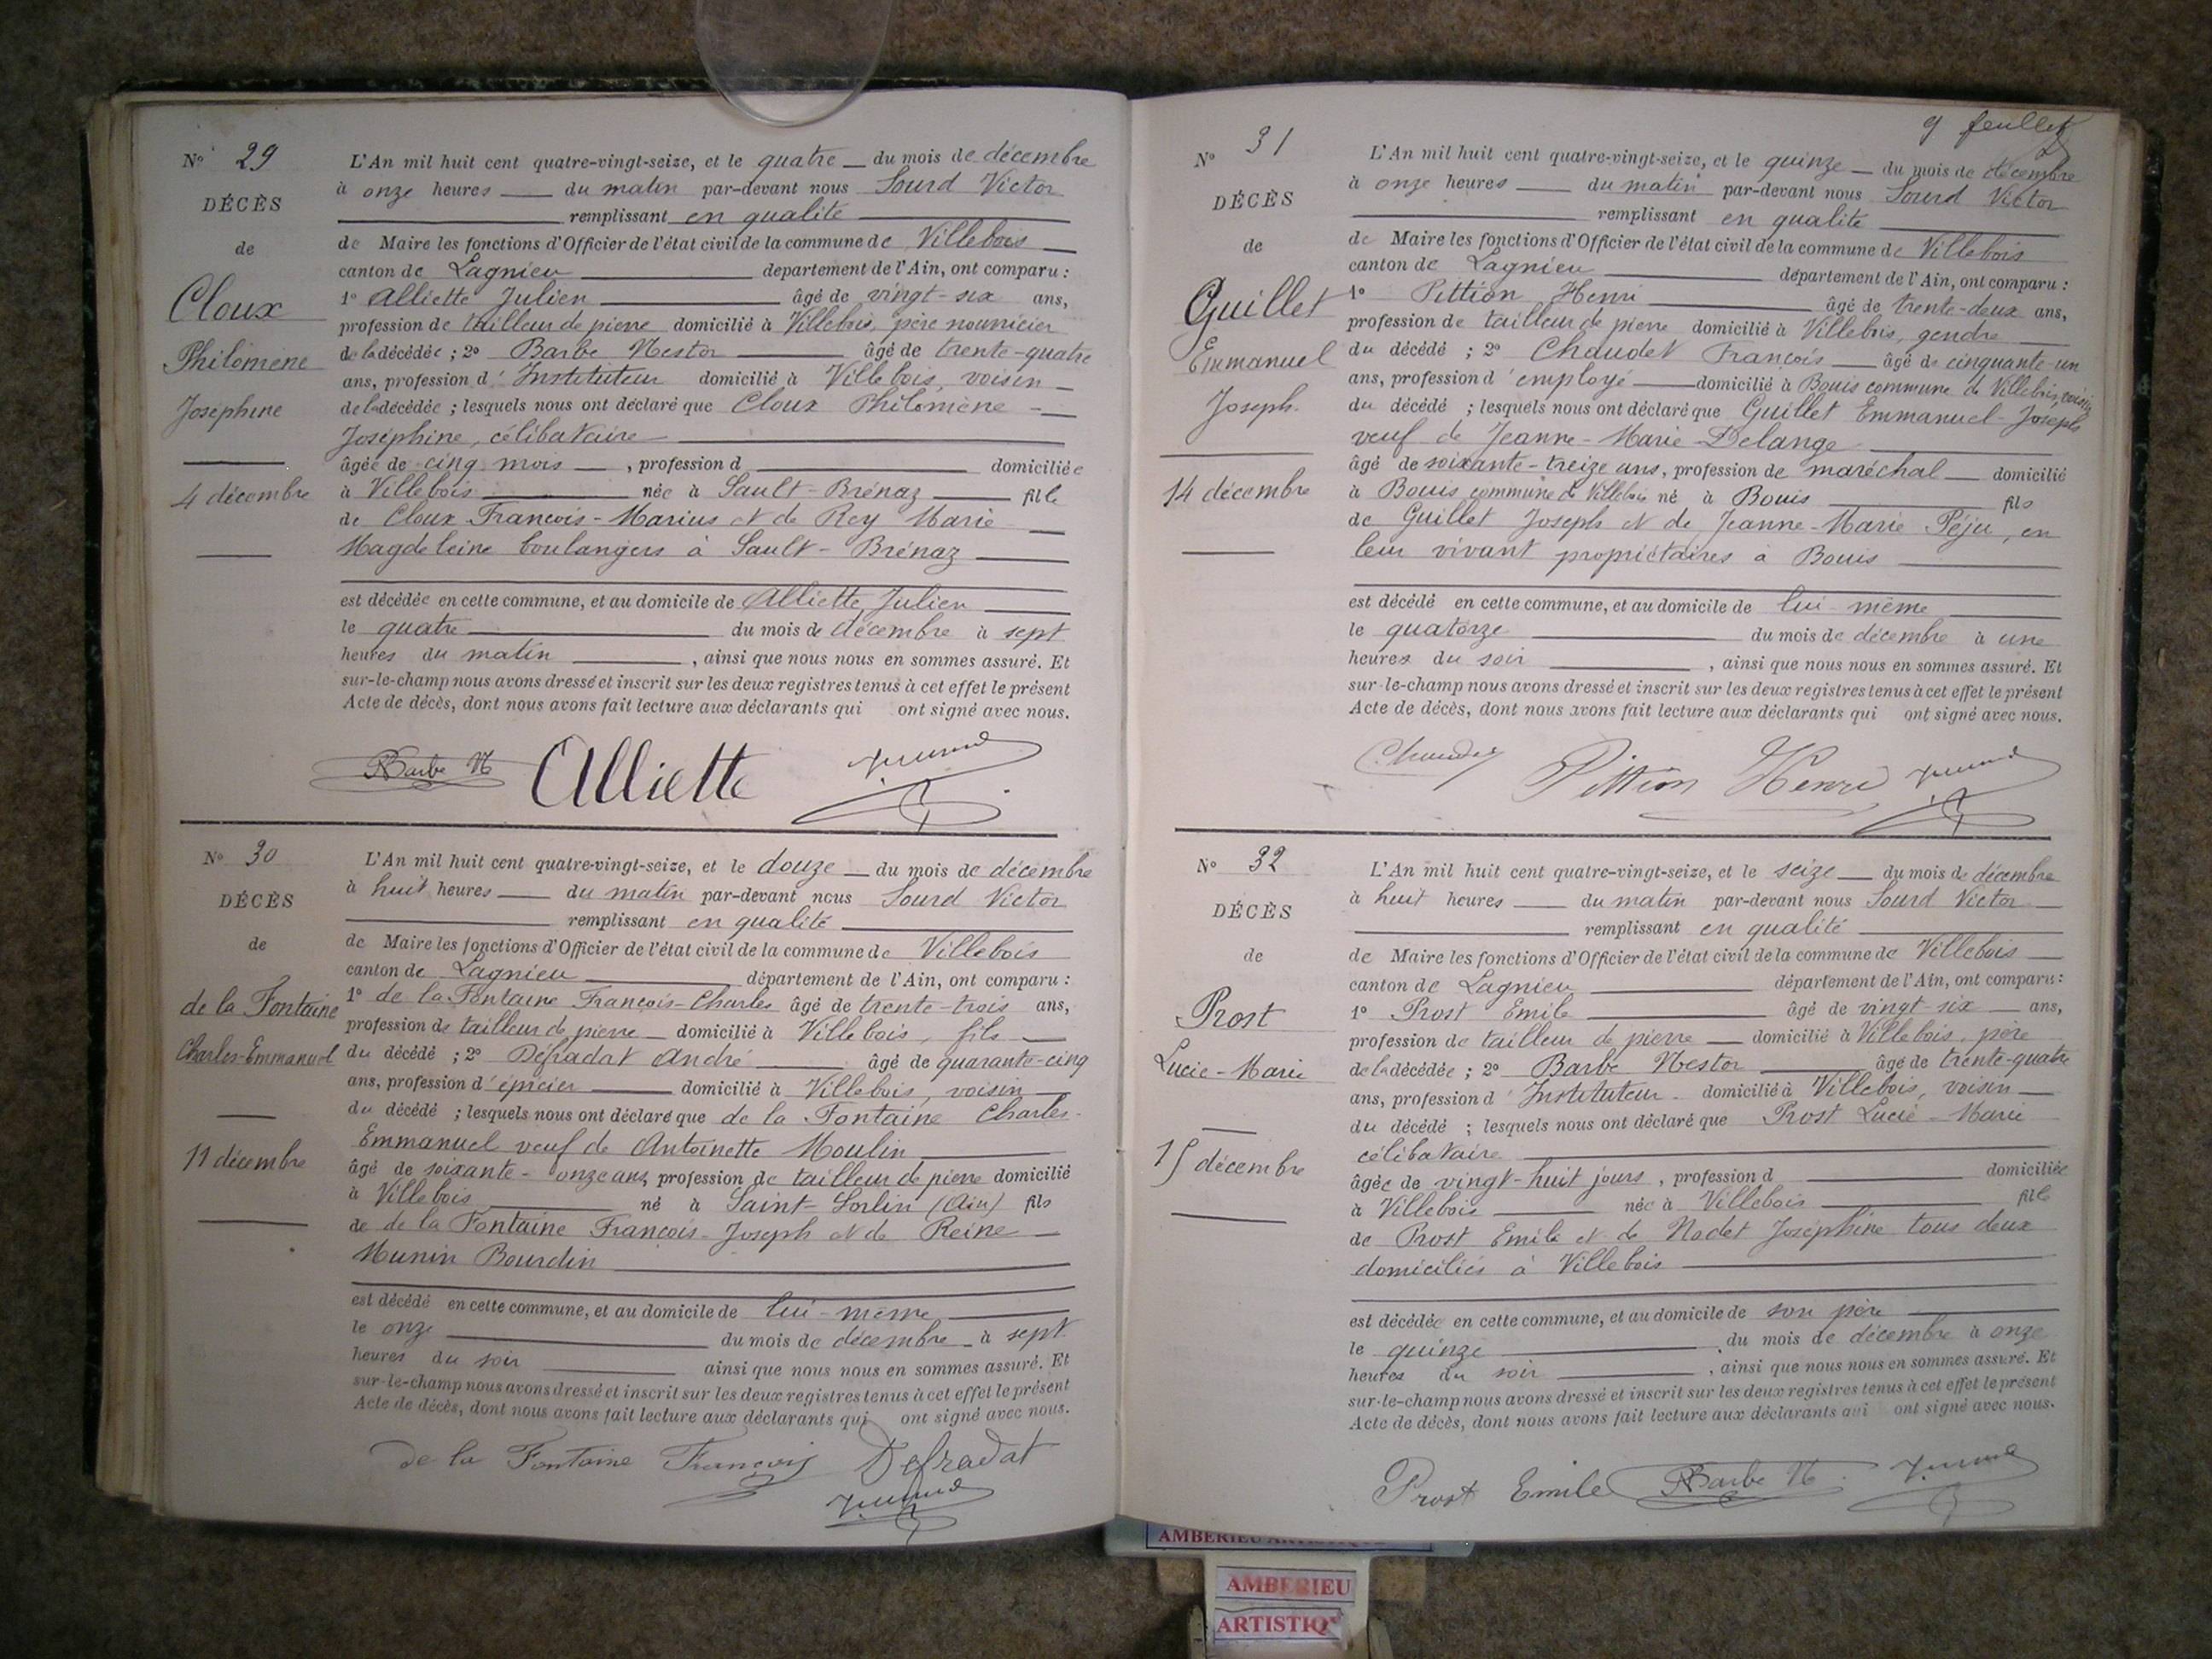 N° 29
DÉCÈS
de
Cloux
Philomène
Joséphine
4 décembre
L'An mil huit cent quatre-vingt-seize, et le quatre du mois de décembre
à onze heures du matin par-devant nous Sourd Victor
remplissant en qualité
de Maire les fonctions d'Officier de l'état civil de la commune de Villebois
canton de Lagnieu département de l'Ain, ont comparu :
1° Alliette Julien âgé de vingt-six ans,
profession de tailleur de pierre domicilié à Villebois, père nourricier
de la décédée ; 2° Barbe Nestor âgé de trente-quatre
ans, profession d'Instituteur domicilié à Villebois, voisin
de la décédée ; lesquels nous ont déclaré que Cloux Philomène
Joséphine, célibataire
âgée de cinq mois, profession d domiciliée
à Villebois née à Sault-Brénaz fille
de Cloux François-Marius et de Rey Marie
Magdeleine boulangers à Sault-Brénaz
est décédée en cette commune, et au domicile de Alliette Julien
le quatre du mois de décembre à sept
heures du matin, ainsi que nous nous en sommes assuré. Et
sur-le-champ nous avons dressé et inscrit sur les deux registres tenus à cet effet le présent
Acte de décès, dont nous avons fait lecture aux déclarants qui ont signé avec nous.
Barbe N Alliette
N° 30
DÉCÈS
de
de la Fontaine
Charles-Emmanuel
11 décembre
L'An mil huit cent quatre-vingt-seize, et le douze du mois de décembre
à huit heures du matin par-devant nous Sourd Victor
remplissant en qualité
de Maire les fonctions d'Officier de l'état civil de la commune de Villebois
canton de Lagnieu département de l'Ain, ont comparu :
1° de la Fontaine François-Charles âgé de trente-trois ans,
profession de tailleur de pierre domicilié à Villebois, fils
du décédé ; 2° Défradat André âgé de quarante-cinq
ans, profession d'épicier domicilié à Villebois, voisin
du décédé ; lesquels nous ont déclaré que de la Fontaine Charles-
Emmanuel veuf de Antoinette Moulin
âgé de soixante-onze ans, profession de tailleur de pierre domicilié
à Villebois né à Saint-Sorlin (Ain) fils
de de la Fontaine François-Joseph et de Reine
Munin Bourdin
est décédé en cette commune, et au domicile de lui-même
le onze du mois de décembre à sept
heures du soir ainsi que nous nous en sommes assuré. Et
sur-le-champ nous avons dressé et inscrit sur les deux registres tenus à cet effet le présent
Acte de décès, dont nous avons fait lecture aux déclarants qui ont signé avec nous.
de la Fontaine François Defradat
9 feuillet
N° 31
DÉCÈS
de
Guillet
Emmanuel
Joseph
14 décembre
L'An mil huit cent quatre-vingt-seize, et le quinze du mois de décembre
à onze heures du matin par-devant nous Sourd Victor
remplissant en qualité
de Maire les fonctions d'Officier de l'état civil de la commune de Villebois
canton de Lagnieu département de l'Ain, ont comparu :
1° Pittion Henri âgé de trente-deux ans,
profession de tailleur de pierre domicilié à Villebois, gendre
du décédé ; 2° Chaudet François âgé de cinquante-un
ans, profession d'employé domicilié à Bouis commune de Villebois, voisin
du décédé ; lesquels nous ont déclaré que Guillet Emmanuel-Joseph
veuf de Jeanne-Marie Delange
âgé de soixante-treize ans, profession de maréchal domicilié
à Bouis commune de Villebois né à Bouis fils
de Guillet Joseph et de Jeanne-Marie Péju, en
leur vivant propriétaires à Bouis
est décédé en cette commune, et au domicile de lui-même
le quatorze du mois de décembre à une
heures du soir, ainsi que nous nous en sommes assuré. Et
sur-le-champ nous avons dressé et inscrit sur les deux registres tenus à cet effet le présent
Acte de décès, dont nous avons fait lecture aux déclarants qui ont signé avec nous.
Pittion Henri
N° 32
DÉCÈS
de
Prost
Lucie-Marie
15 décembre
L'An mil huit cent quatre-vingt-seize, et le seize du mois de décembre
à huit heures du matin par-devant nous Sourd Victor
remplissant en qualité
de Maire les fonctions d'Officier de l'état civil de la commune de Villebois
canton de Lagnieu département de l'Ain, ont comparu :
1° Prost Emile âgé de vingt-six ans,
profession de tailleur de pierre domicilié à Villebois, père
de la décédée ; 2° Barbe Nestor âgé de trente-quatre
ans, profession d'Instituteur domicilié à Villebois, voisin
du décédé ; lesquels nous ont déclaré que Prost Lucie-Marie
célibataire
âgée de vingt-huit jours, profession d domiciliée
à Villebois née à Villebois fille
de Prost Emile et de Nodet Joséphine tous deux
domiciliés à Villebois
est décédée en cette commune, et au domicile de son père
le quinze du mois de décembre à onze
heures du soir, ainsi que nous nous en sommes assuré. Et
sur-le-champ nous avons dressé et inscrit sur les deux registres tenus à cet effet le présent
Acte de décès, dont nous avons fait lecture aux déclarants qui ont signé avec nous.
Prost Emile Barbe N
AMBERIEU ARTISTIQUE
AMBERIEU
ARTISTIQ